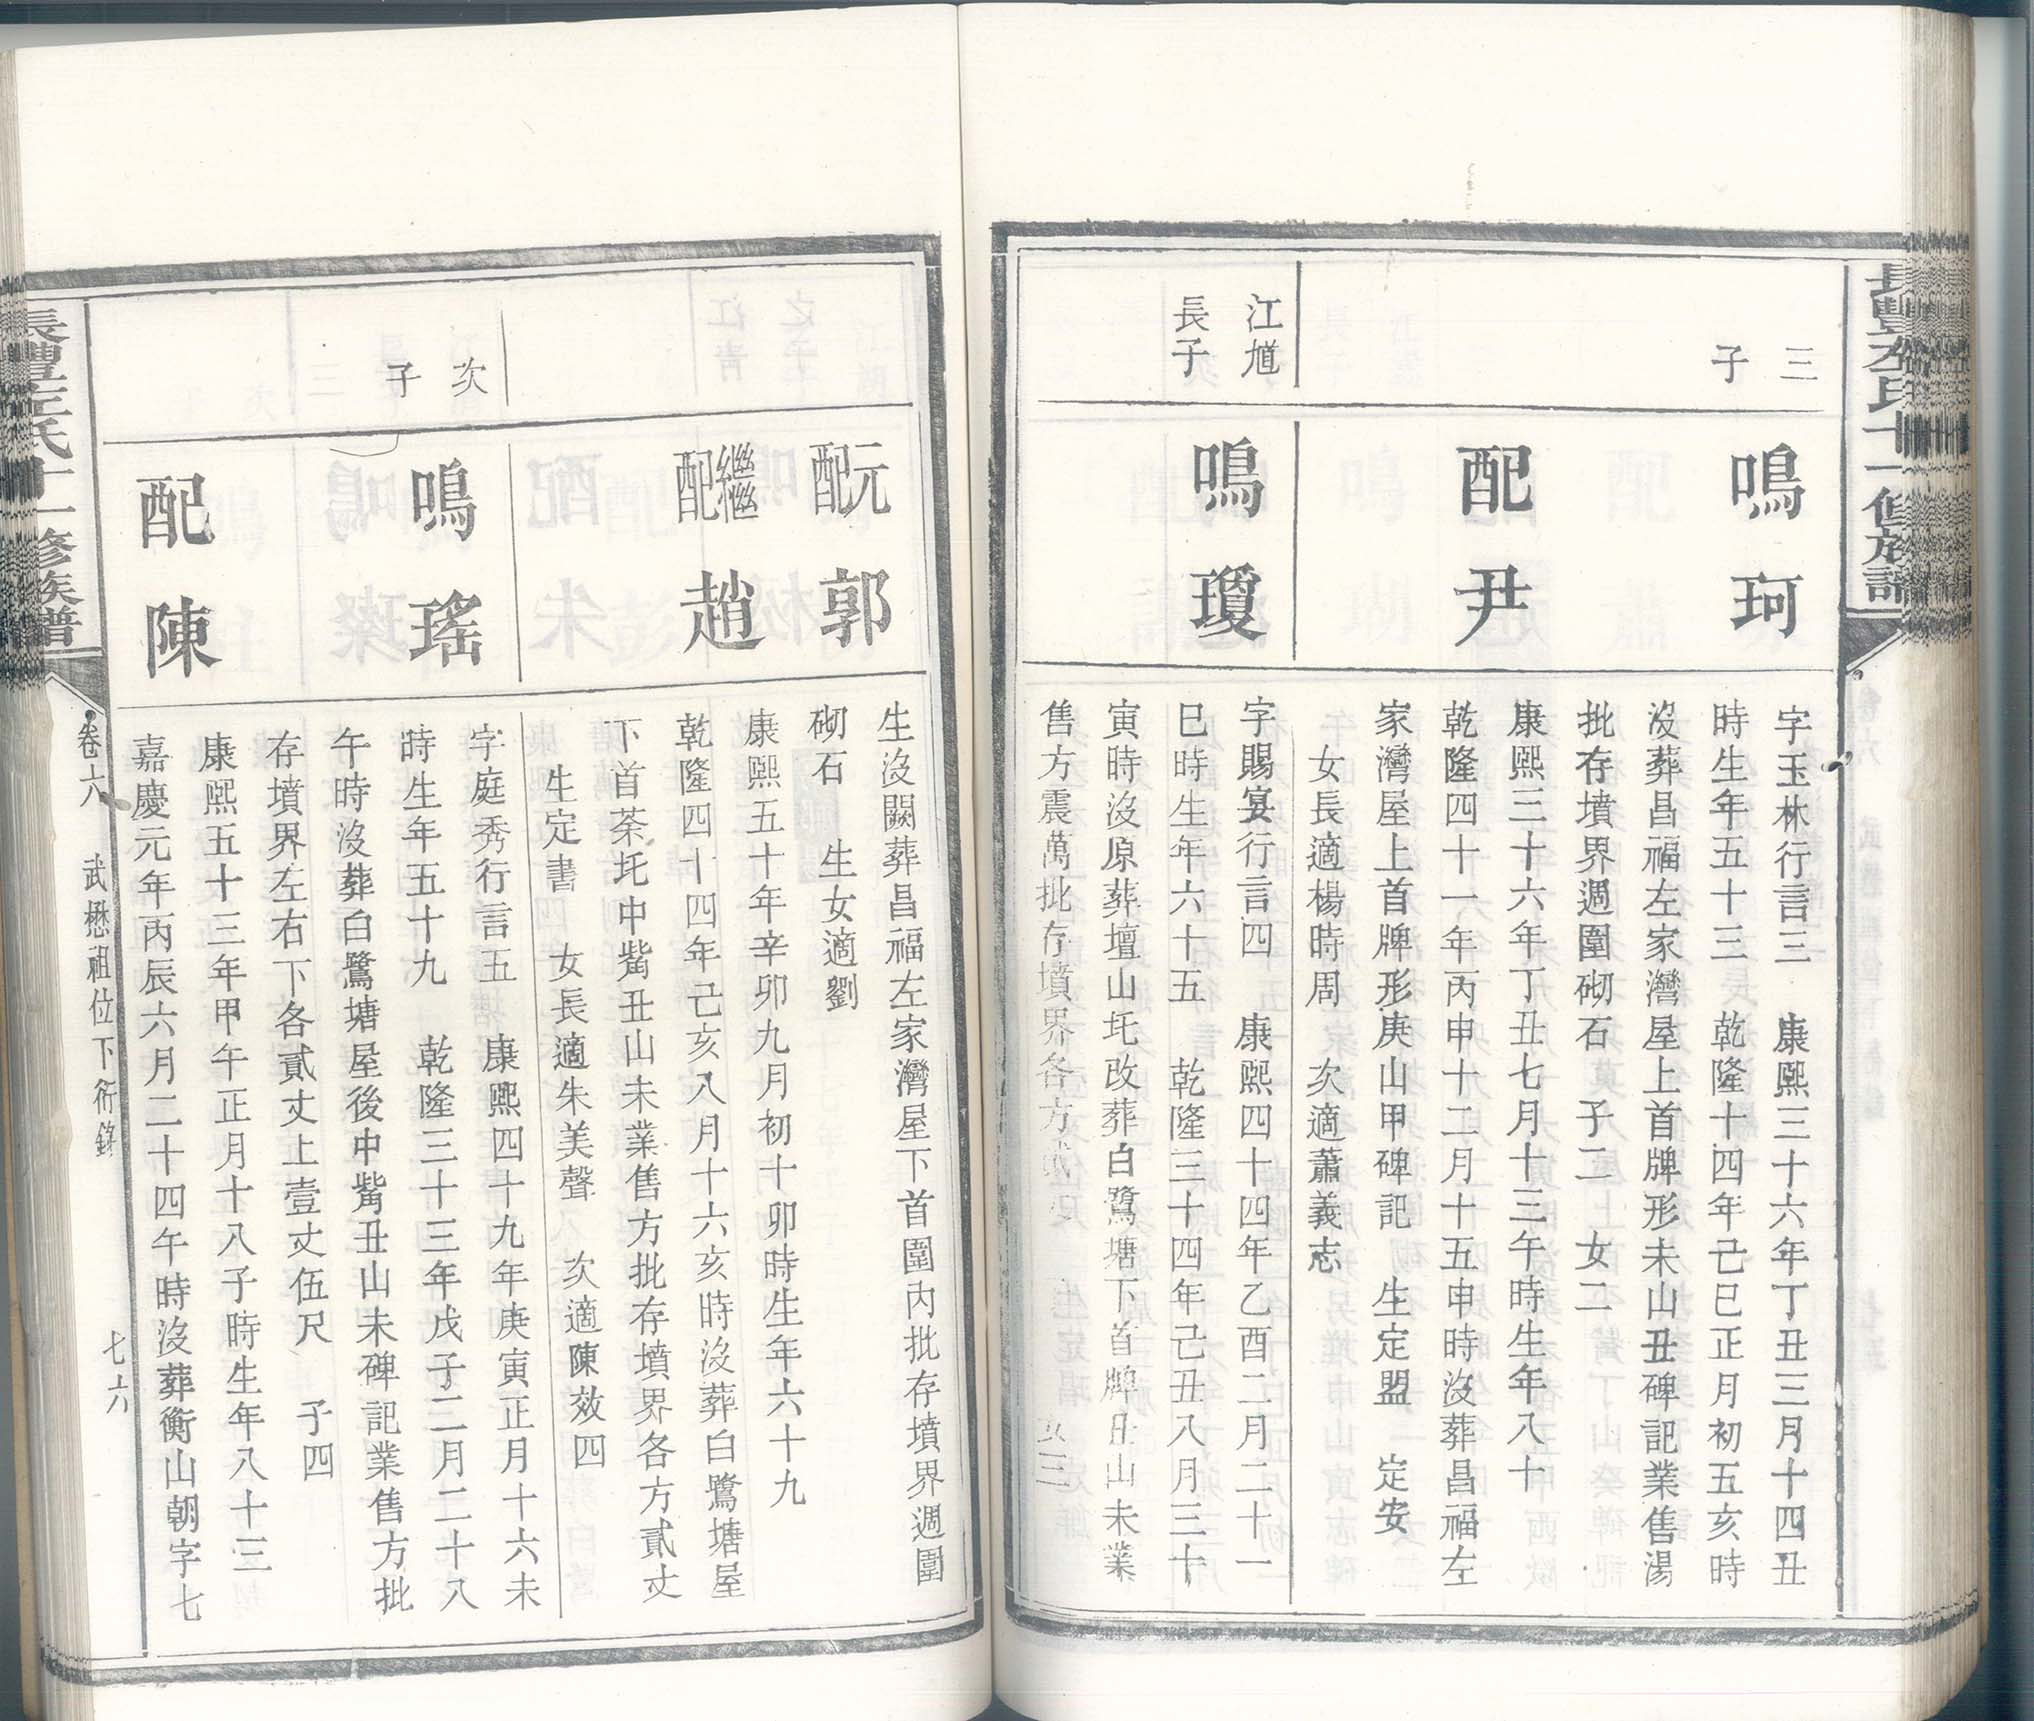 三
子
鳴珂
字玉林行言三 康熙三十六年丁丑三月十四丑
時生年五十三 乾隆十四年己巳正月初五亥時
沒葬昌福左家灣屋上首牌形未山丑碑記業售湯
批存墳界週圍砌石 子二 女二
配尹
康熙三十六年丁丑七月十三午時生年八十
乾隆四十一年丙申十二月十五申時沒葬昌福左
家灣屋上首牌形庚山甲碑記 生定盟 定安
女長適楊時周 次適蕭義志
江馗
長子
鳴瓊
字賜宴行言四 康熙四十四年乙酉二月二十一
巳時生年六十五 乾隆三十四年己丑八月三十
寅時沒原葬壇山圫改葬白鷺塘下首牌丑山未業
售方震萬批存墳界各方貳 女三
元配郭
生沒闕葬昌福左家灣屋下首圍內批存墳界週圍
砌石 生女適劉
繼配趙
康熙五十年辛卯九月初十卯時生年六十九
乾隆四十四年己亥八月十六亥時沒葬白鷺塘屋
下首茶圫中觜丑山未業售方批存墳界各方貳丈
生定書 女長適朱美聲 次適陳效四
次
子
鳴瑤
字庭秀行言五 康熙四十九年庚寅正月十六未
時生年五十九 乾隆三十三年戊子二月二十八
午時沒葬白鷺塘屋後中觜丑山未碑記業售方批
存墳界左右下各貳丈上壹丈伍尺 子四
配陳
康熙五十三年甲午正月十八子時生年八十三
嘉慶元年丙辰六月二十四午時沒葬衡山朝字七
卷六 武懋祖位下衍錄 七六
十一修族譜